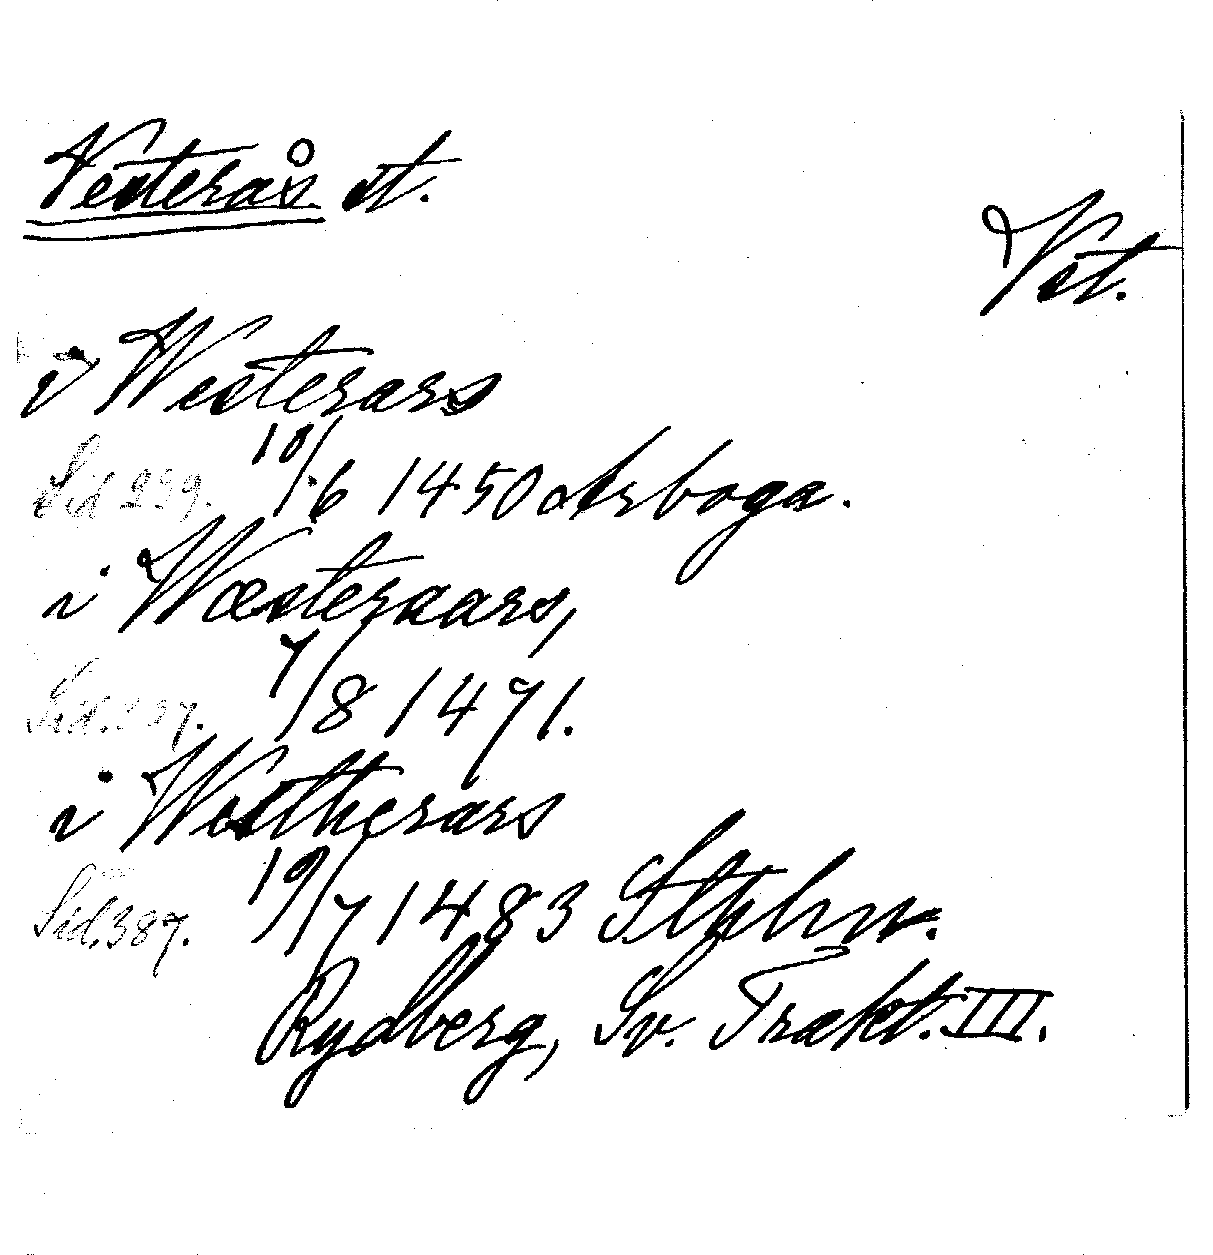 Vesterås st.
Vst.
i Westerars
Sid 239. 10/6 1450 Arboga.
i Wæsteraars,
Sid. 337. 7/8 1471.
i Westherars
Sid. 387. 19/7 1483 Sthlm.
Rydberg, Sv. Trakt. III.